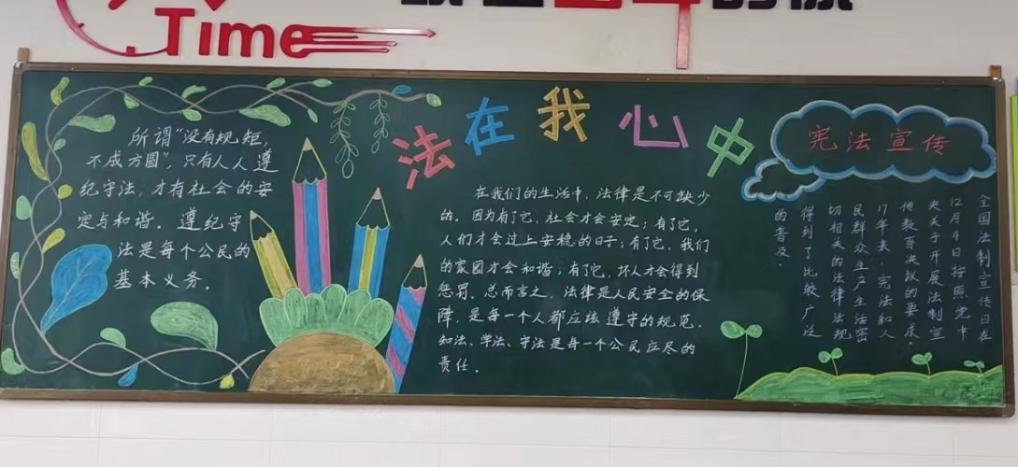 Time
法在我心中
所谓“没有规,短,
不成方圆”,只有人人遵
纪守法,才有社会的安
定与和谐。遵纪守
法是每个公民的
基本义务。
在我们的生活中,法律是不可缺少
的。因为有了它,社会才会安定;有了它,
人们才会过上安稳的日子;有了它,我们
的家园才会和谐;有了它,坏人才会得到
惩罚。总而言之,法律是人民安全的保
障,是每一个人都应该遵守的规范.
知法、学法、守法是每一个公民应尽的
责任。
宪法宣传
全国法制宣传日在
12月4日按照党中
央关于开展法制宣
传教育决议的要求.
17年来,宪法和人
民群众生产生活密
切相关的法律法规
得到了比较广泛
的普及.